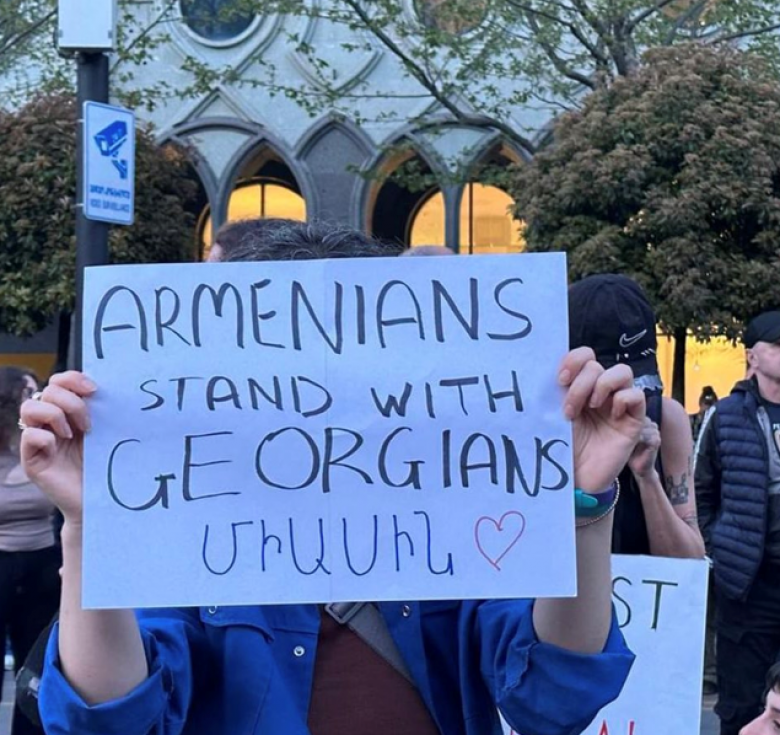 ARMENIANS
STAND WITH
GEORGIANS
ՄԻԱՍԻՆ
ST